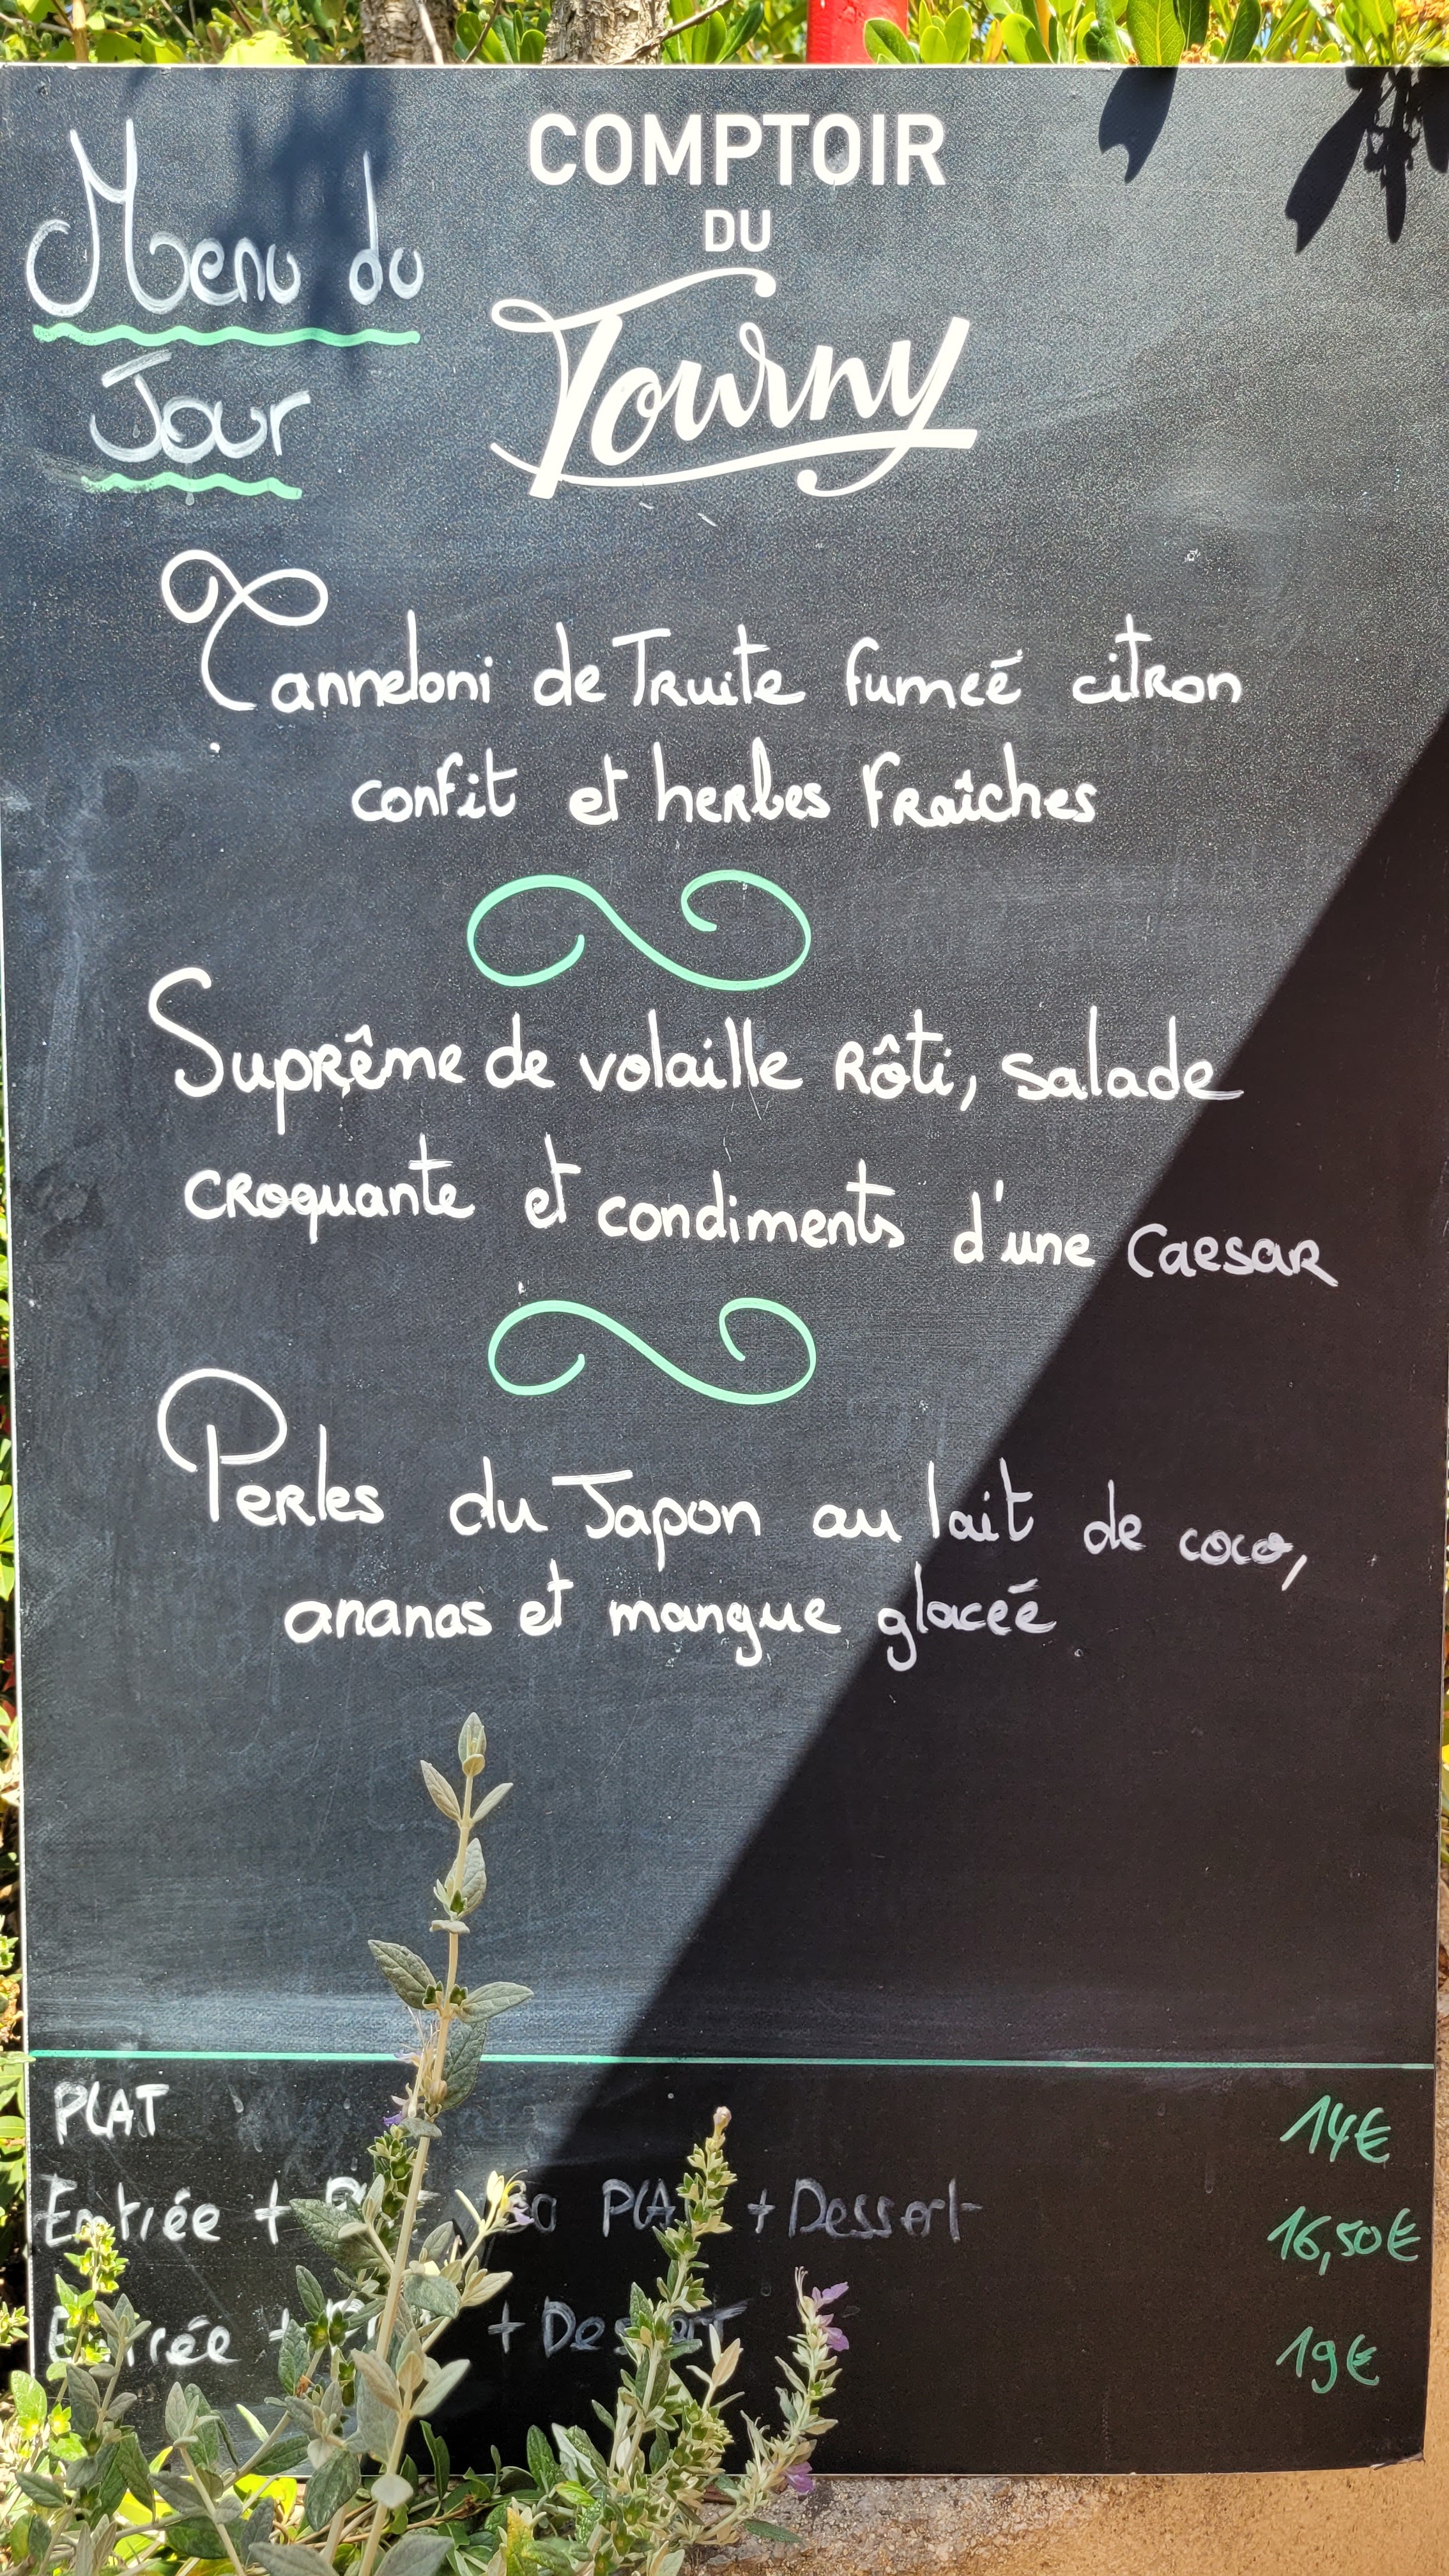 COMPTOIR
DU
Tourny
Menu du
Jour
Canneloni de Truite fumeé citron
confit et herbes fraîches
Suprême de volaille rôti, salade
croquante et condiments d'une Caesar
Perles du Japon au lait de coco,
ananas et mangue glaceé
PLAT 14€
Entrée + + Dessert 16,50€
Entrée + + Dessert 19€